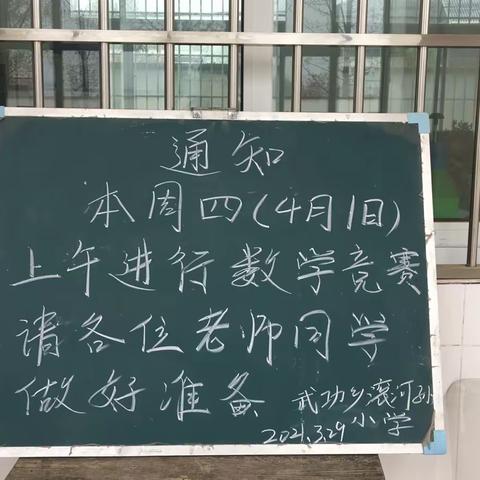 通知
本周四(4月1日)
上午进行数学竞赛
请各位老师同学
做好准备
武功乡滚河孙
小学
2021.3.29